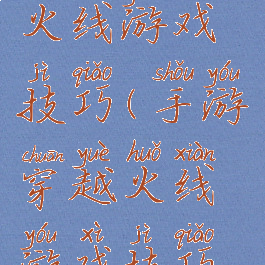 火线游戏
jì qiǎo shǒu yóu
技巧(手游
chuān yuè huǒ xiàn
穿越火线
yóu xì jì qiǎo
游戏技巧